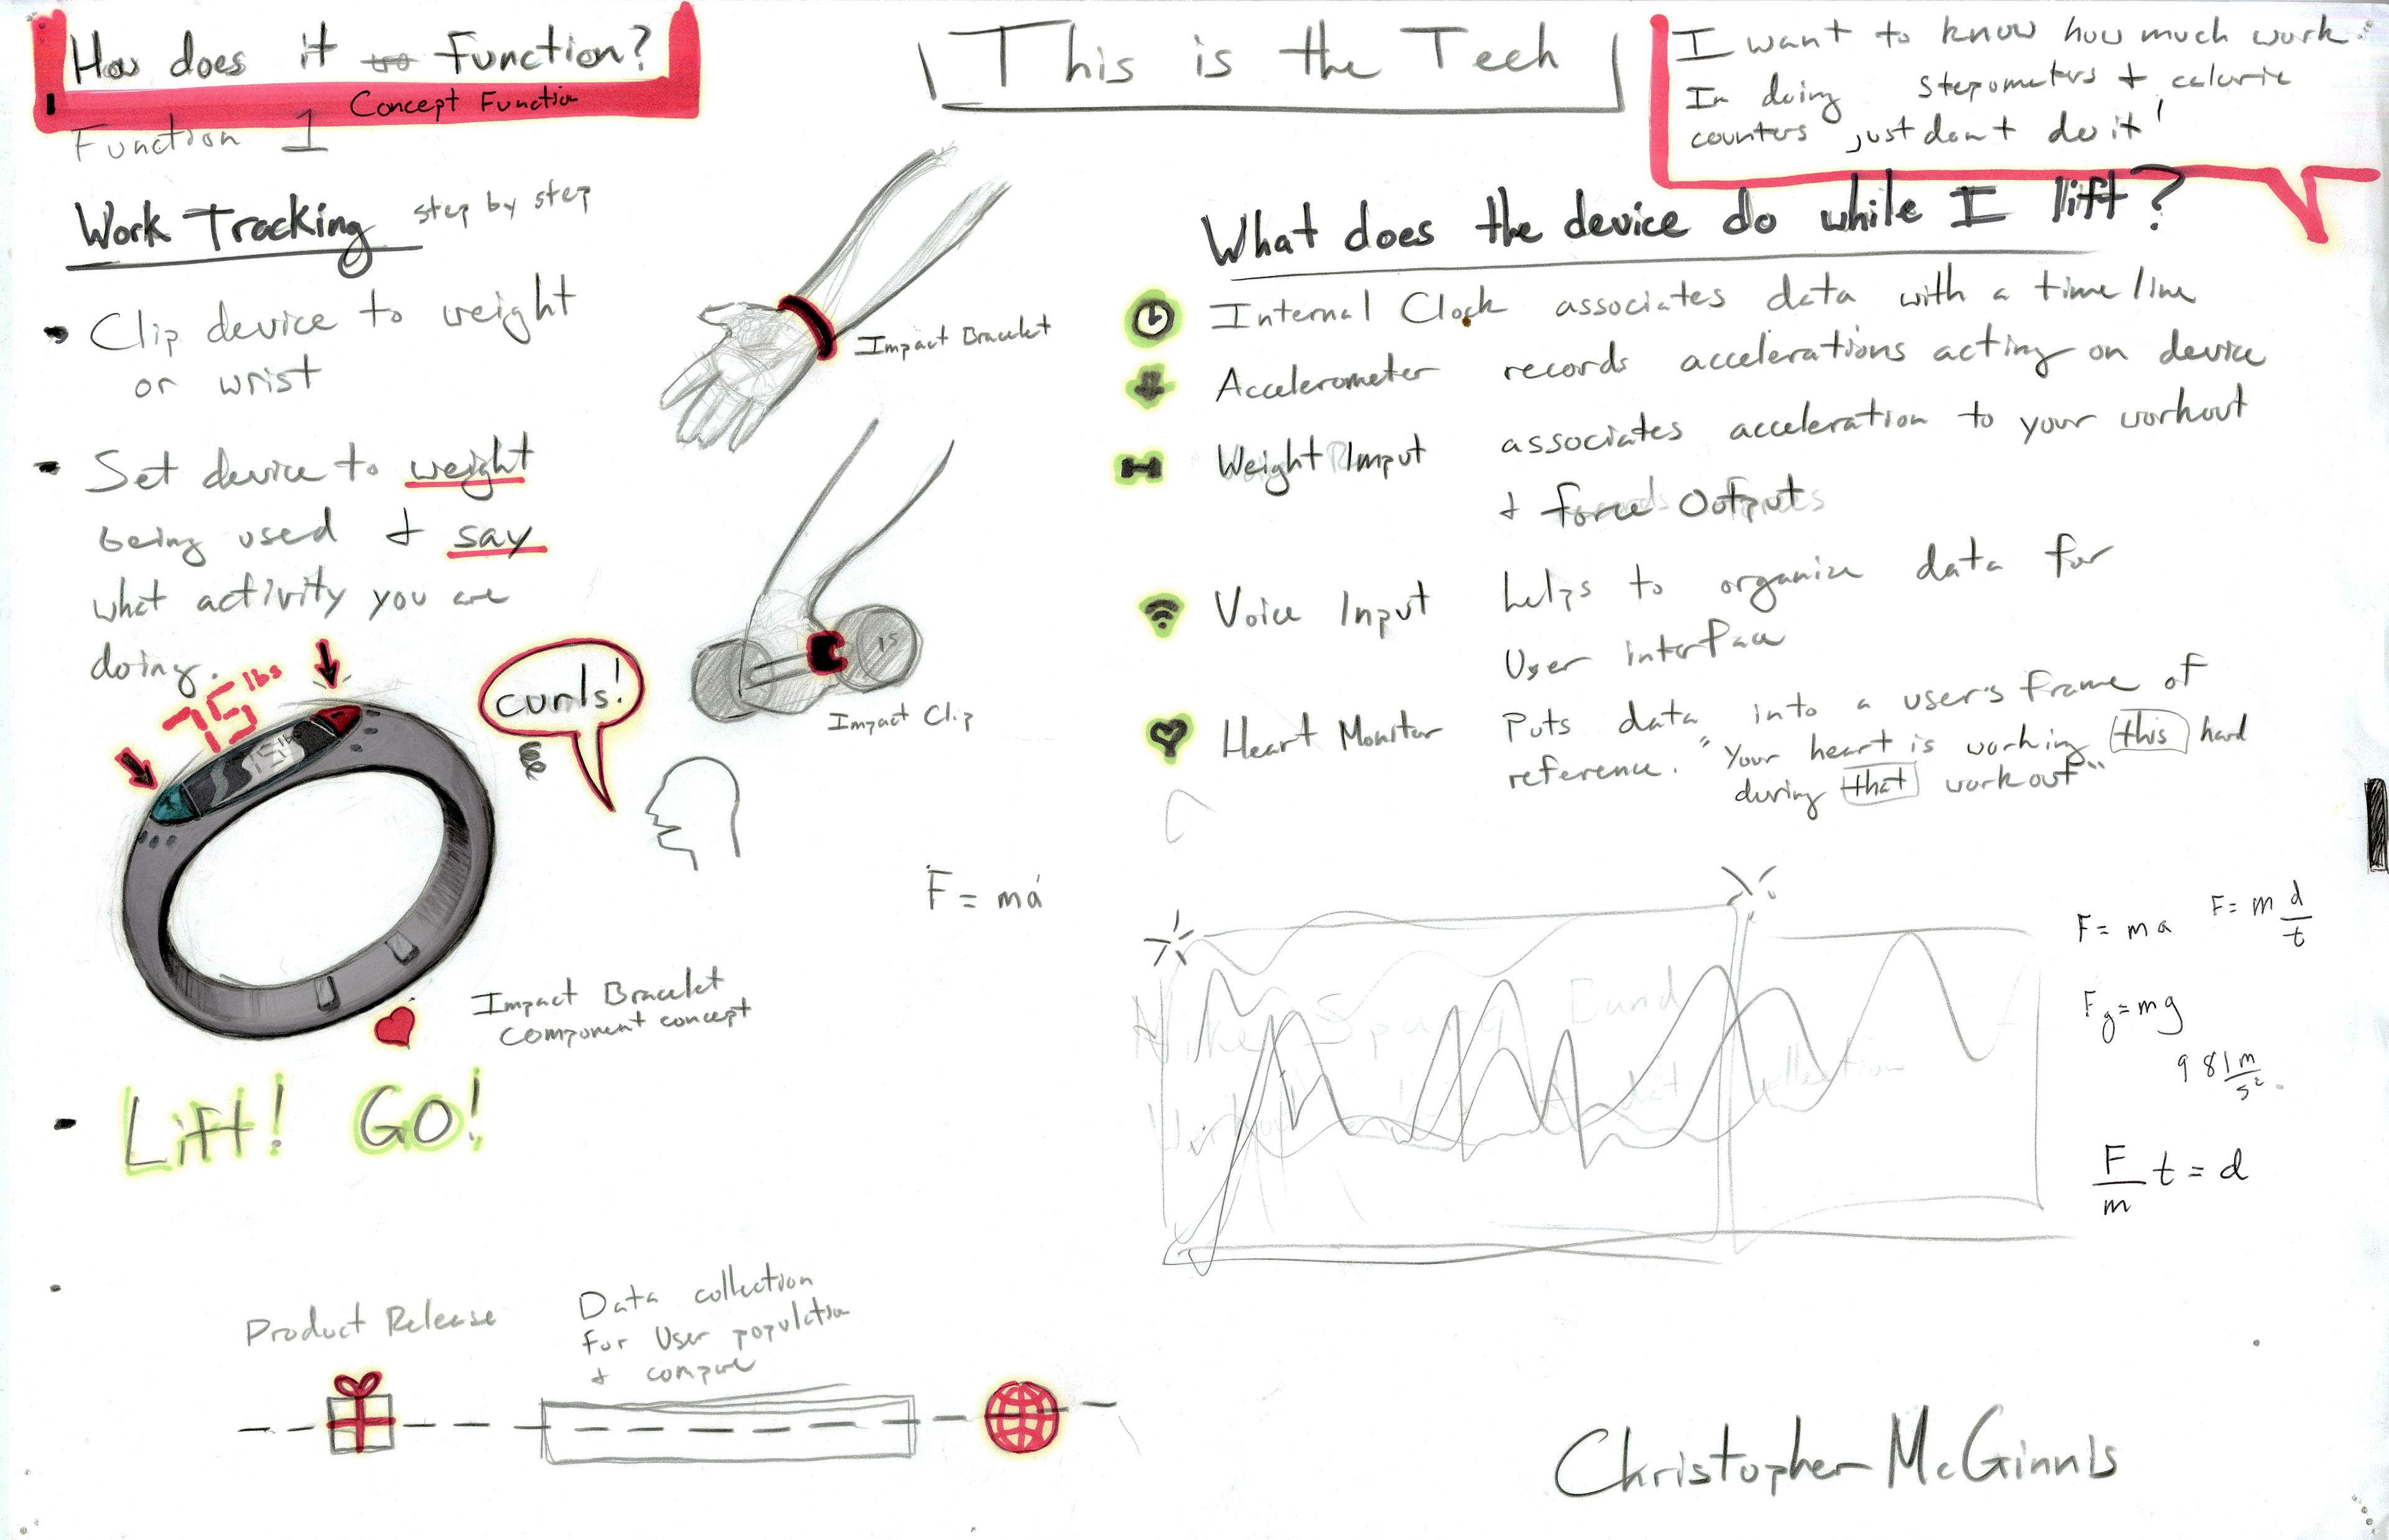 How does it to Function?
Concept Function
Function 1
This is the Tech
I want to know how much work
Im doing stepometers + calorie
counters just don't do it!
Work Tracking step by step
• Clip device to weight
or wrist
- Set device to weight
being used & say
what activity you are
doing.
75 lbs
curls!
Impact Bracelet
15
Impact Clip
Impact Bracelet
Component concept
- Lift! GO!
What does the device do while I lift?
Internal Clock associates data with a time line
Accelerometer records accelerations acting on device
Weight Imput associates acceleration to your workout
& force Outputs
Voice Input helps to organize data for
User interface
Heart Monitor Puts data into a user's frame of
reference. "Your heart is working this hard
during that workout"
F = ma
Nike Band
F = ma F = m d/t
Fg = mg
9 81 m/s²
F/m t = d
Product Release
Data collection
for User population
& compare
Christopher McGinnis